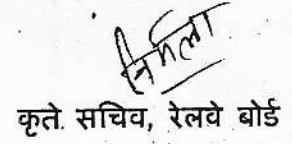 निर्मला
कृते. सचिव, रेलवे बोर्ड